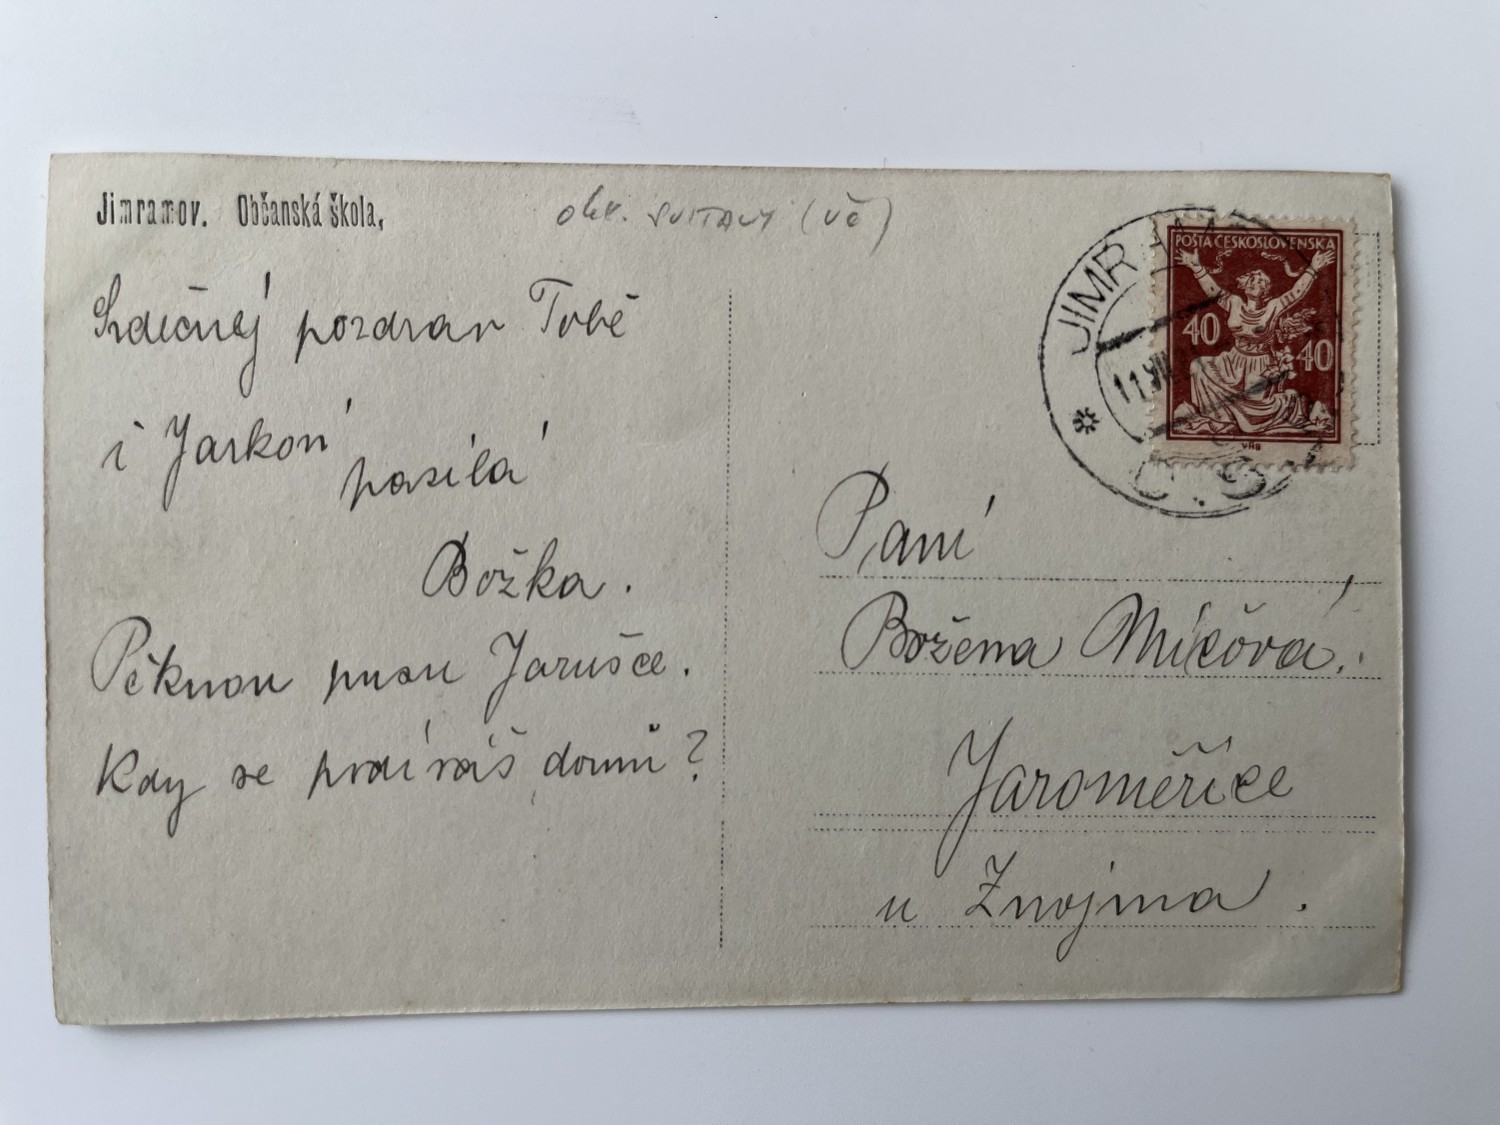 Jimramov. Občanská škola,
okr. SVITAVY (VČ)
Srdečný pozdrav Tobě
i Jarkovi
posílá
Božka.
Pěknou pusu Jarušce.
Kdy se podíváš domů?
POŠTA ČESKOSLOVENSKA
40
40
JIMRAM
11.VII
Č.S.
Paní
Božena Míčová,
Jaroměřice
u Znojma.